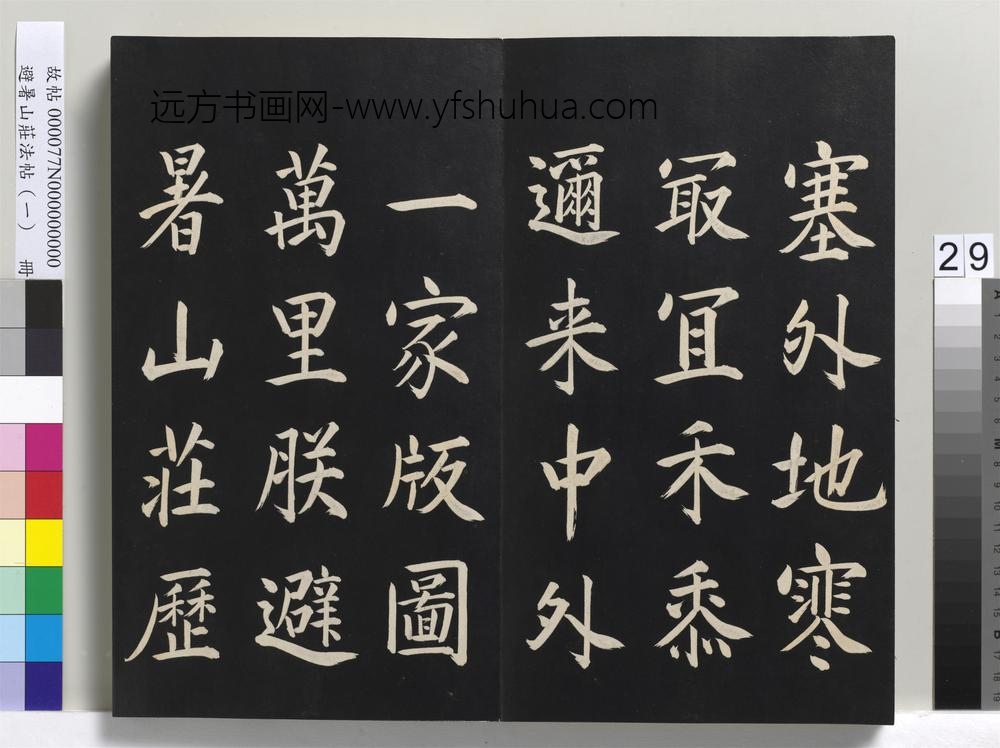 塞外地寒
最宜禾黍
邇来中外
一家版圖
萬里朕避
暑山莊歷
远方书画网-www.yfshuhua.com
故帖 000077N000000000
避暑山莊法帖(一) 冊
29